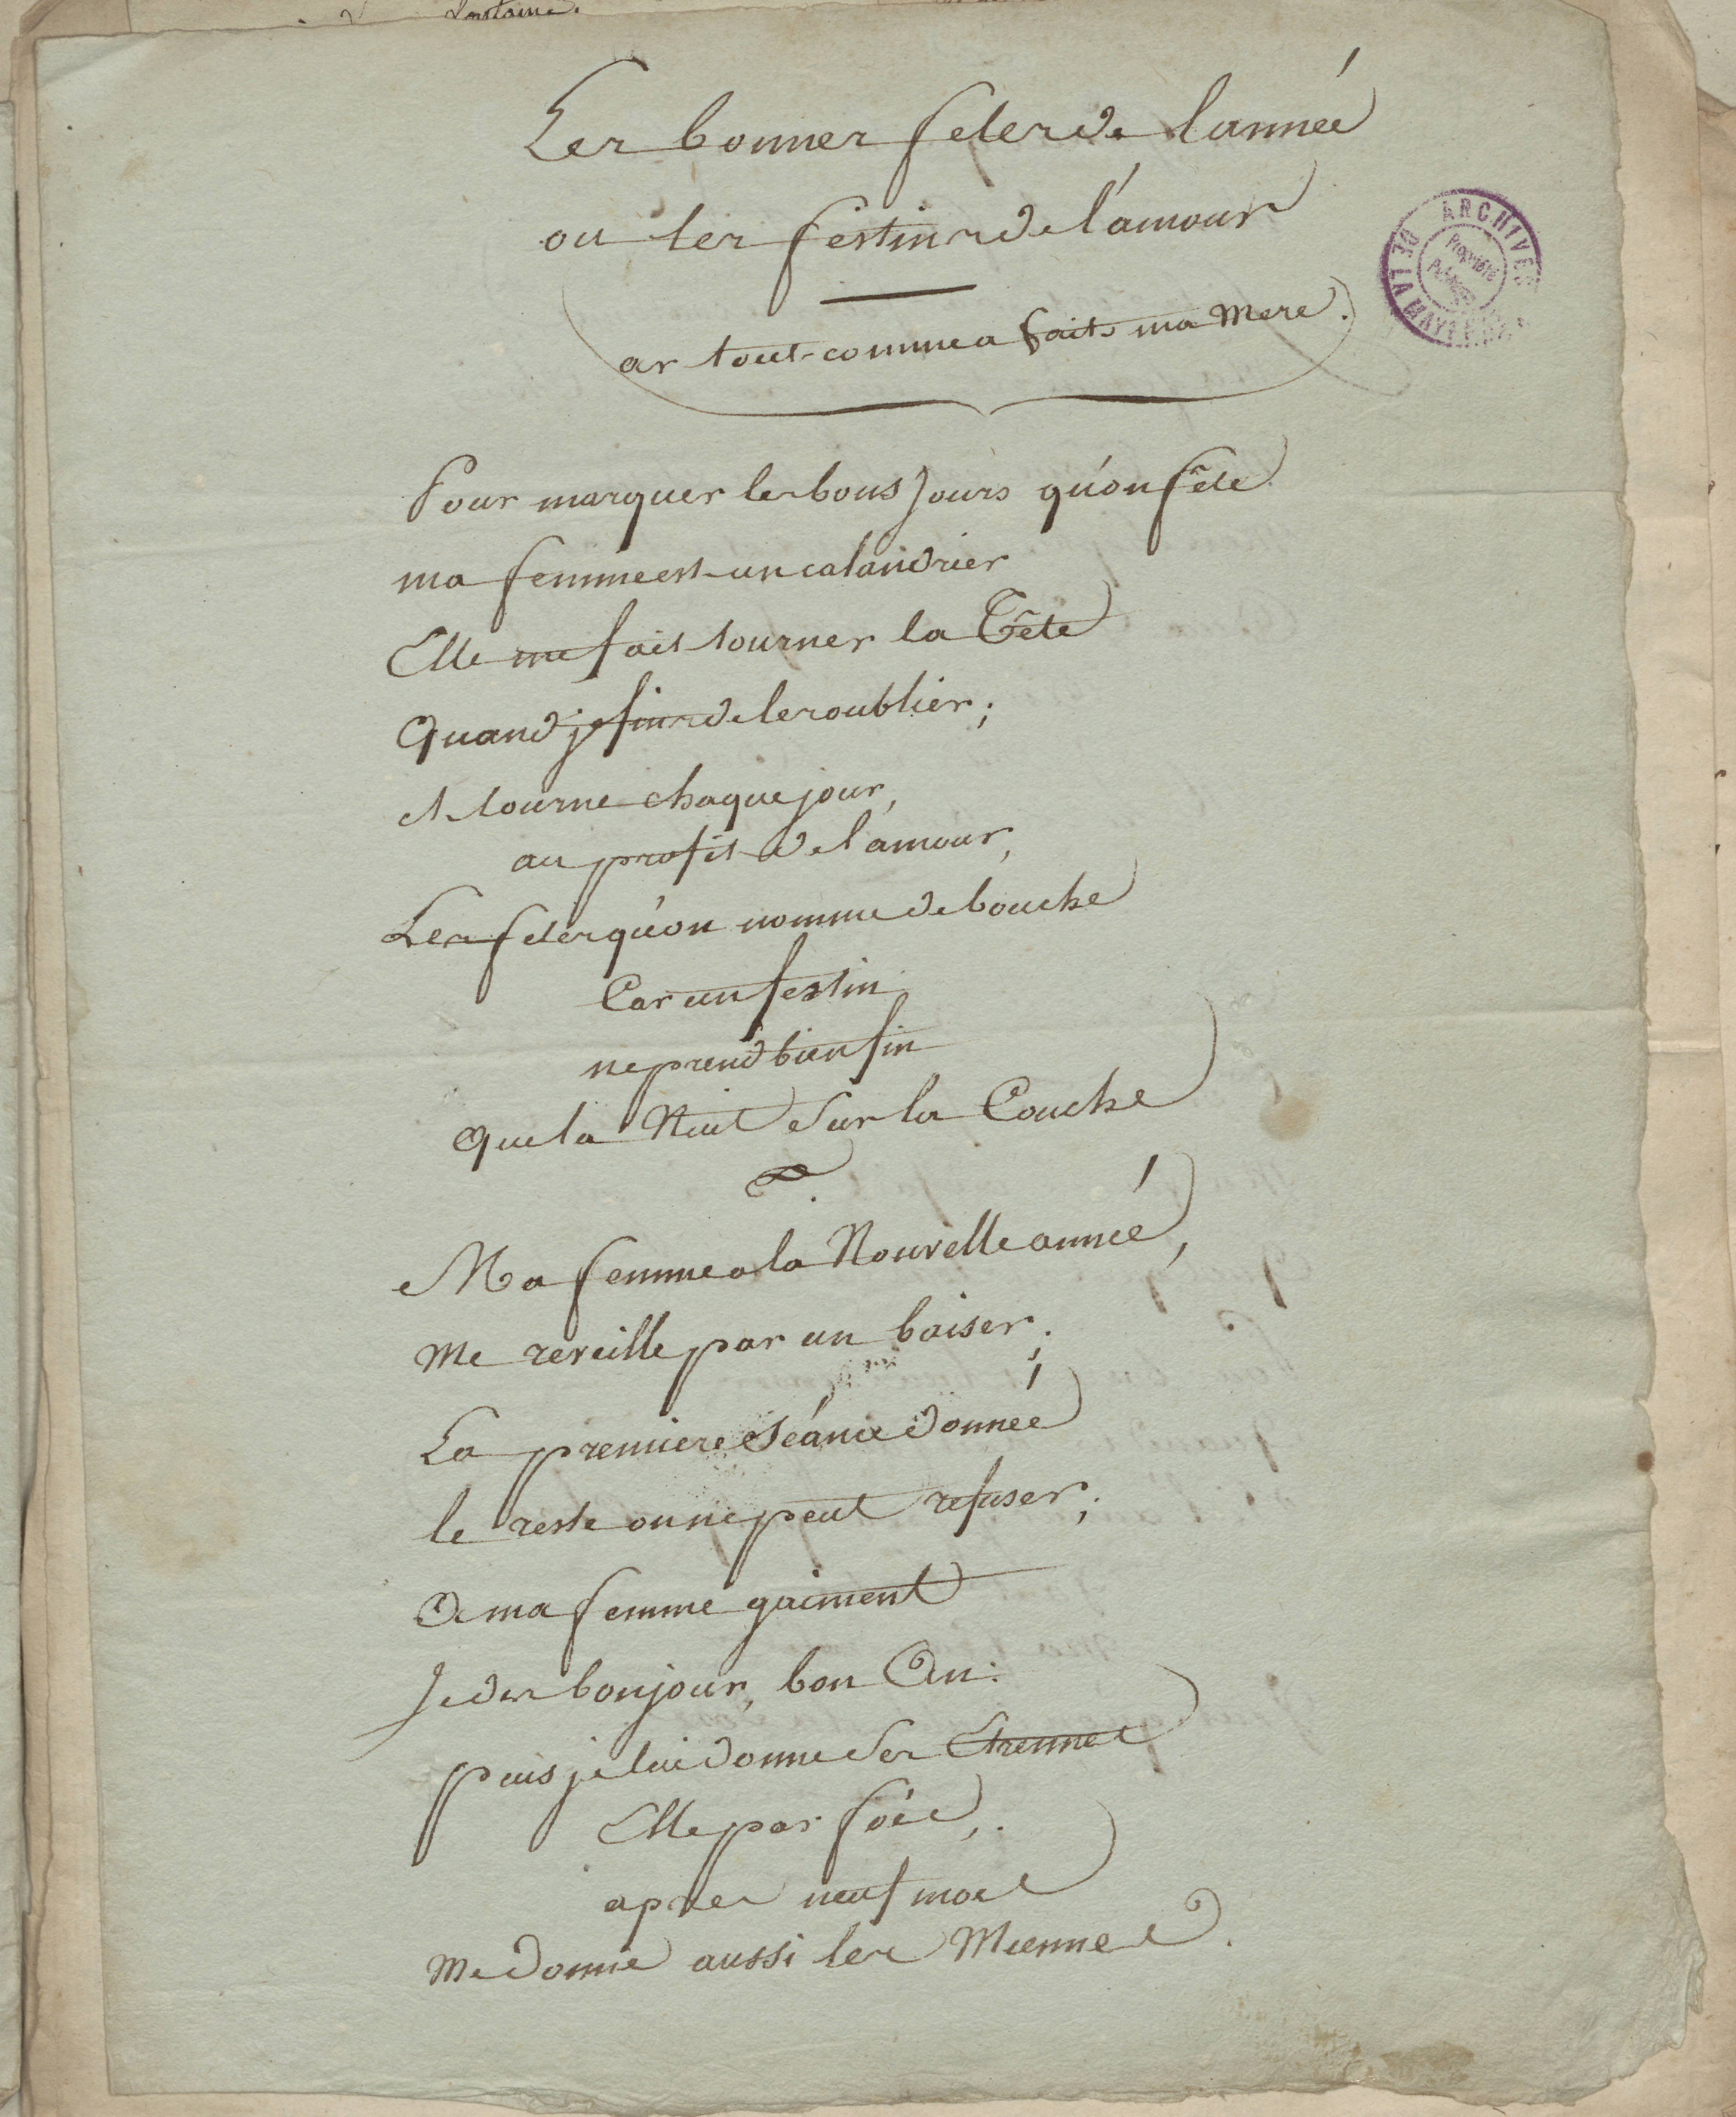 Les bonnes fetes de lannéé
ou les festins de l'amour
ar tout comme a fait ma Mere.
ARCHIVES DE LA MAYENNE
Pour marquer les bons Jours qu'on fête
ma femme est un calandrier
Elle me fait tourner la Tête
Quand je feins de les oublier;
et tourne chaque jour,
au profit de l'amour,
Les fetes qu'on nomme de bouche
Car un festin
ne prend bien fin
Que la Nuit sur la Couche
Ma femme a la Nouvelle année,
Me reveille par un baiser;
La premiere séance donnéé
le reste on ne peut refuser;
A ma femme gaiment
Je dis bonjour, bon An:
puis je lui donne ses Etrennes
Elle par fois,
apres neuf mois
Me donne aussi les Miennes.